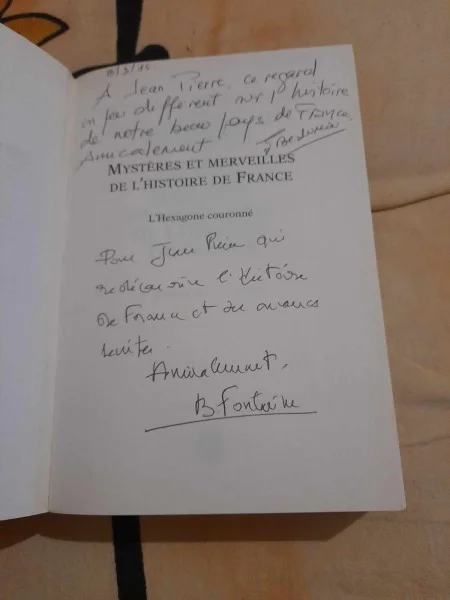 8/3/15
A Jean Pierre, ce regard
un peu different sur l'histoire
de notre beau pays de France,
Amicalement
MYSTÈRES ET MERVEILLES
DE L'HISTOIRE DE FRANCE
L'Hexagone couronné
Pour Jean Pierre qui
l'Histoire
de France et
Amicalement,
B Fontaine